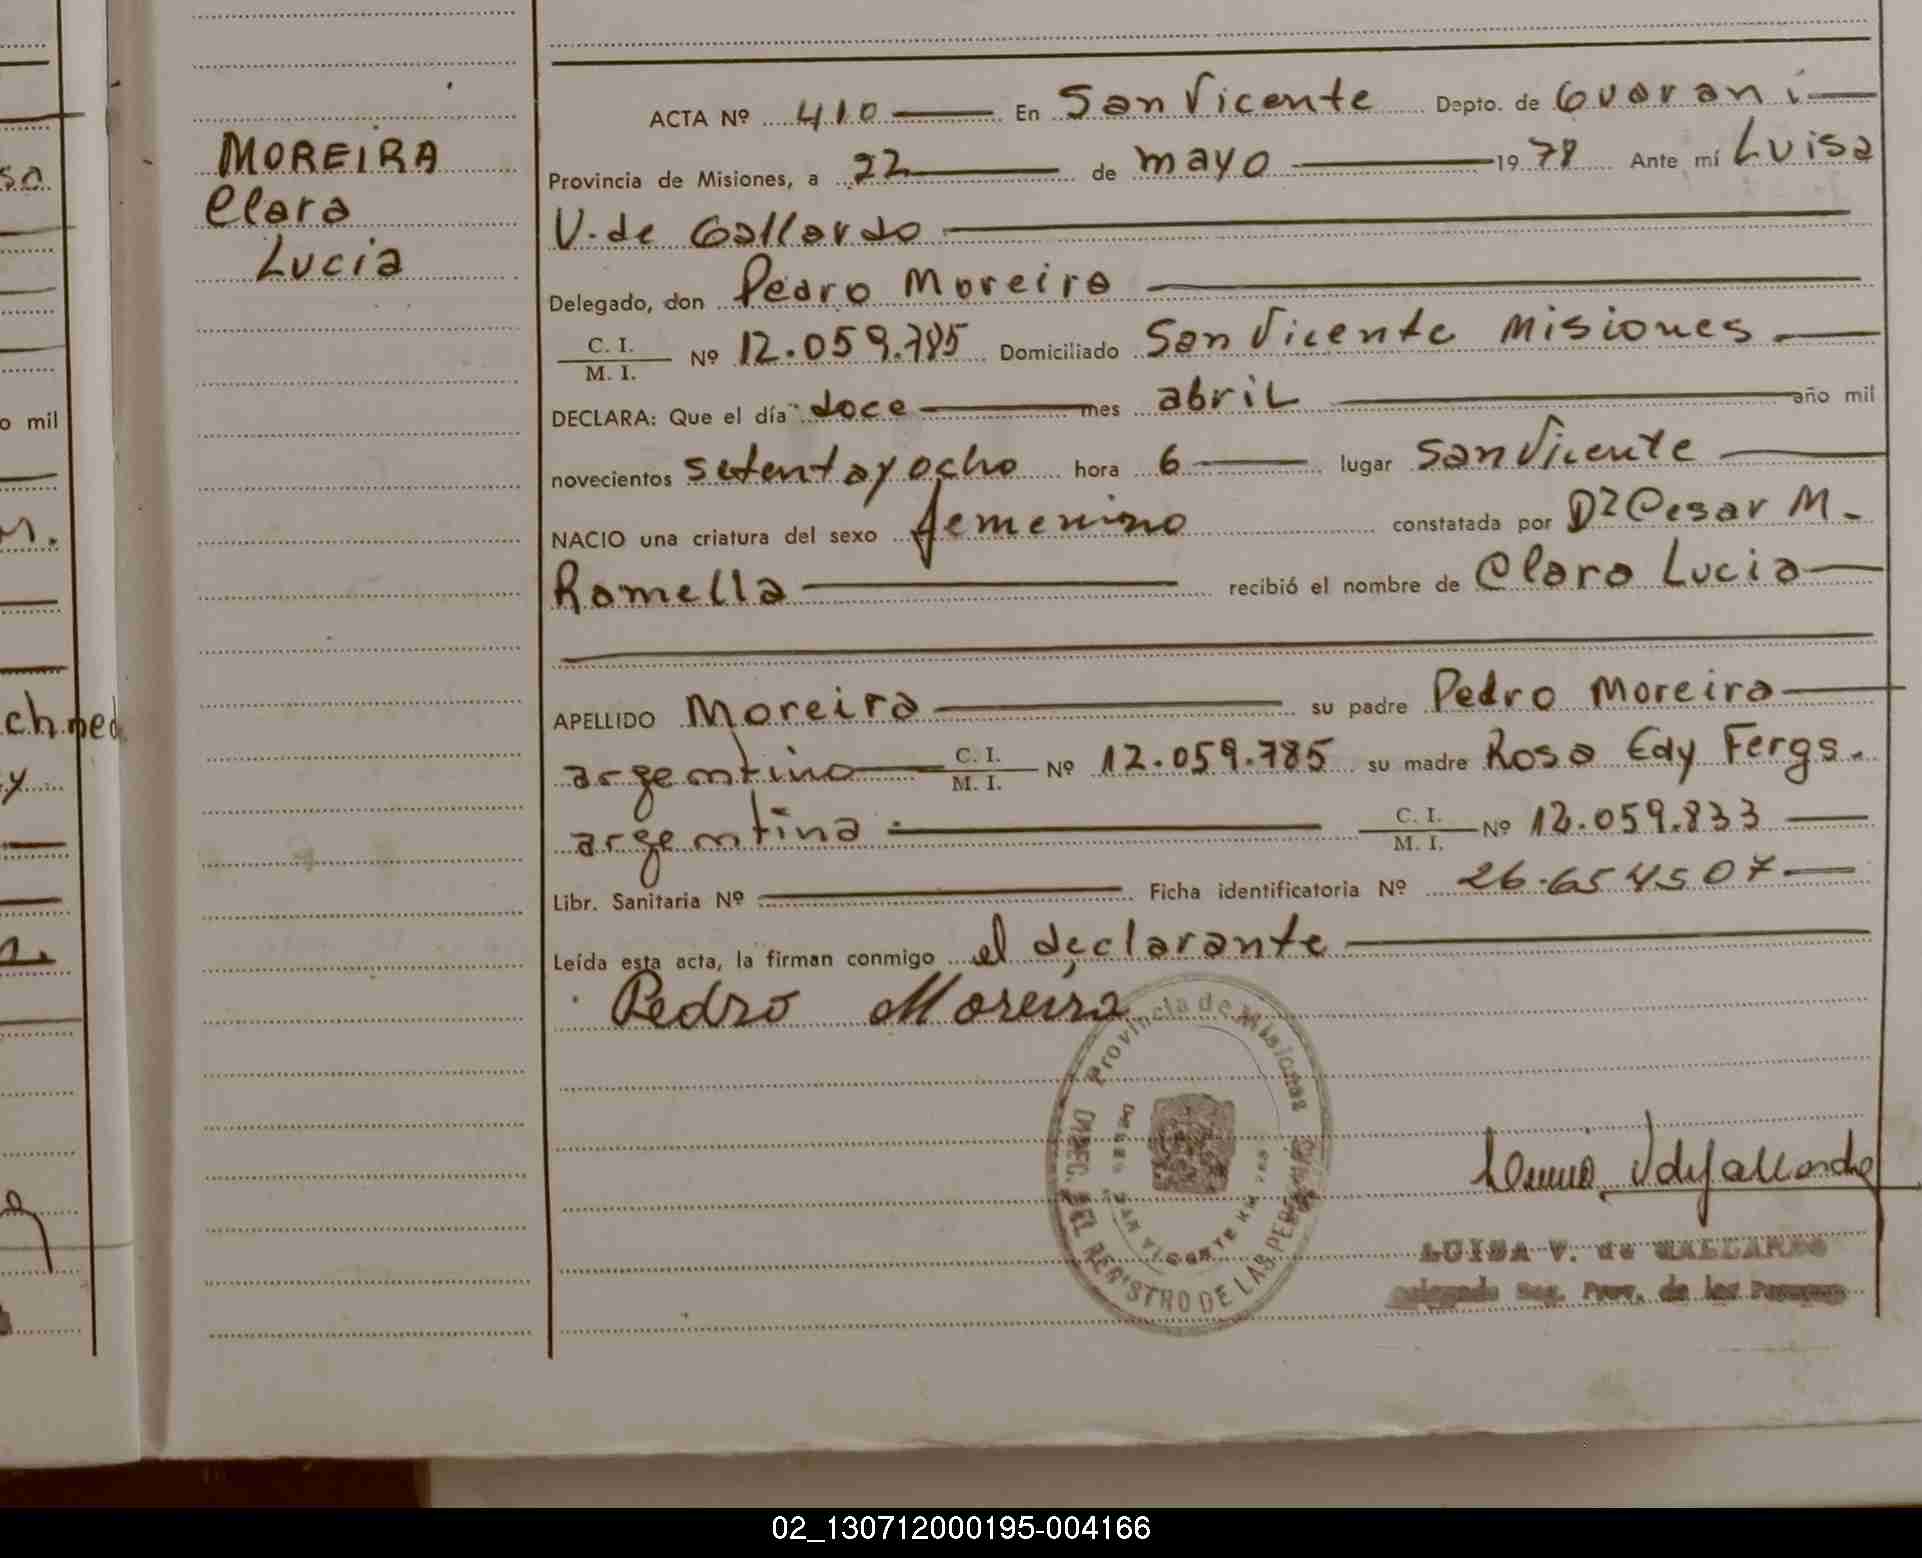 MOREIRA
Clara
Lucia
ACTA Nº 410 En San Vicente Depto. de Guarani
Provincia de Misiones, a 22 de mayo 1978 Ante mí Luisa
V. de Gallardo
Delegado, don Pedro Moreira
C. I. / M. I. Nº 12.059.785 Domiciliado San Vicente Misiones
DECLARA: Que el día doce mes abril año mil
novecientos setenta y ocho hora 6 lugar San Vicente
NACIO una criatura del sexo femenino constatada por Dr Cesar M.
Ramella recibió el nombre de Clara Lucia
APELLIDO Moreira su padre Pedro Moreira
argentino C. I. / M. I. Nº 12.059.785 su madre Rosa Edy Fergs.
argentina C. I. / M. I. Nº 12.059.833
Libr. Sanitaria Nº Ficha identificatoria Nº 26.654507
Leída esta acta, la firman conmigo el declarante
Pedro Moreira
Provincia de Misiones
DIREC. DEL REGISTRO DE LAS PERSONAS
SAN VICENTE KM
Luisa V de Gallardo
LUISA V. de GALLARDO
Delegado Reg. Prov. de las Personas
o mil
02_130712000195-004166